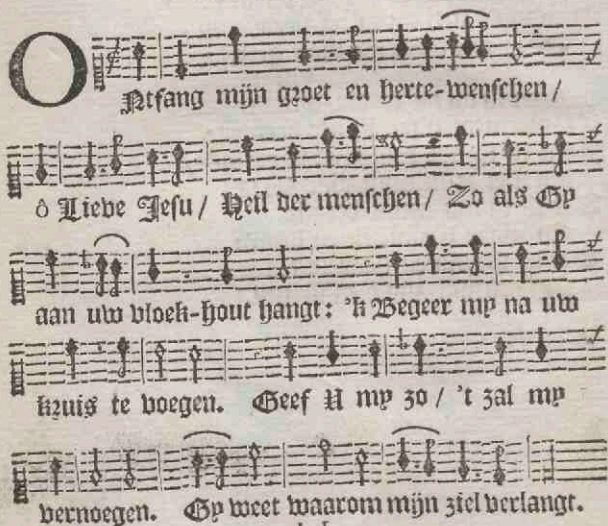 ONtfang mijn groet en herte-wenschen/
ô Lieve Jesu/ Heil der menschen/ Zo als Gy
aan uw vloek-hout hangt: 'k Begeer my na uw
kruis te voegen. Geef U my zo/ 't zal my
vernoegen. Gy weet waarom mijn ziel verlangt.